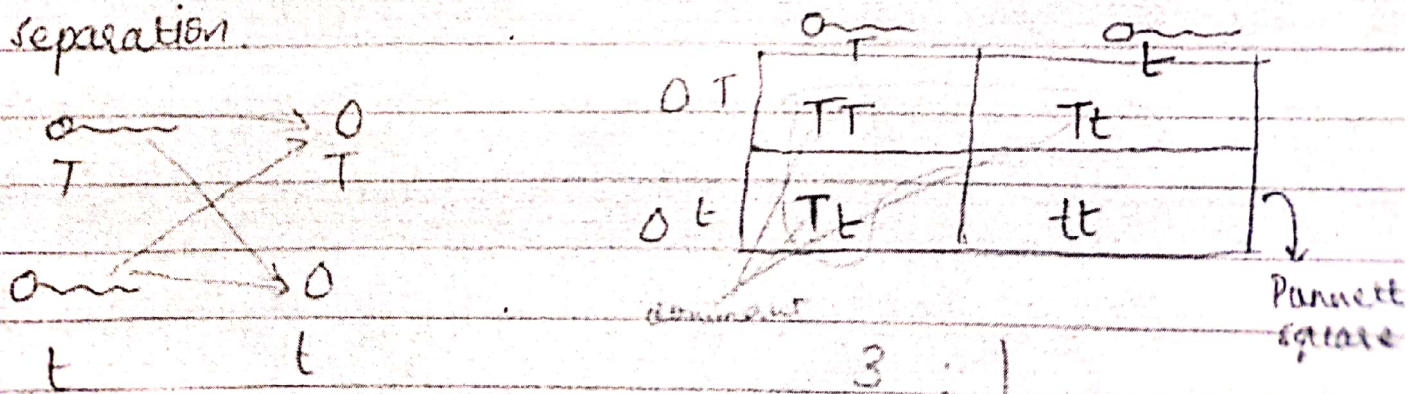 separation.
T t
O T TT Tt
T T
O t Tt tt
Punnett
square
dominant
t t 3 : 1